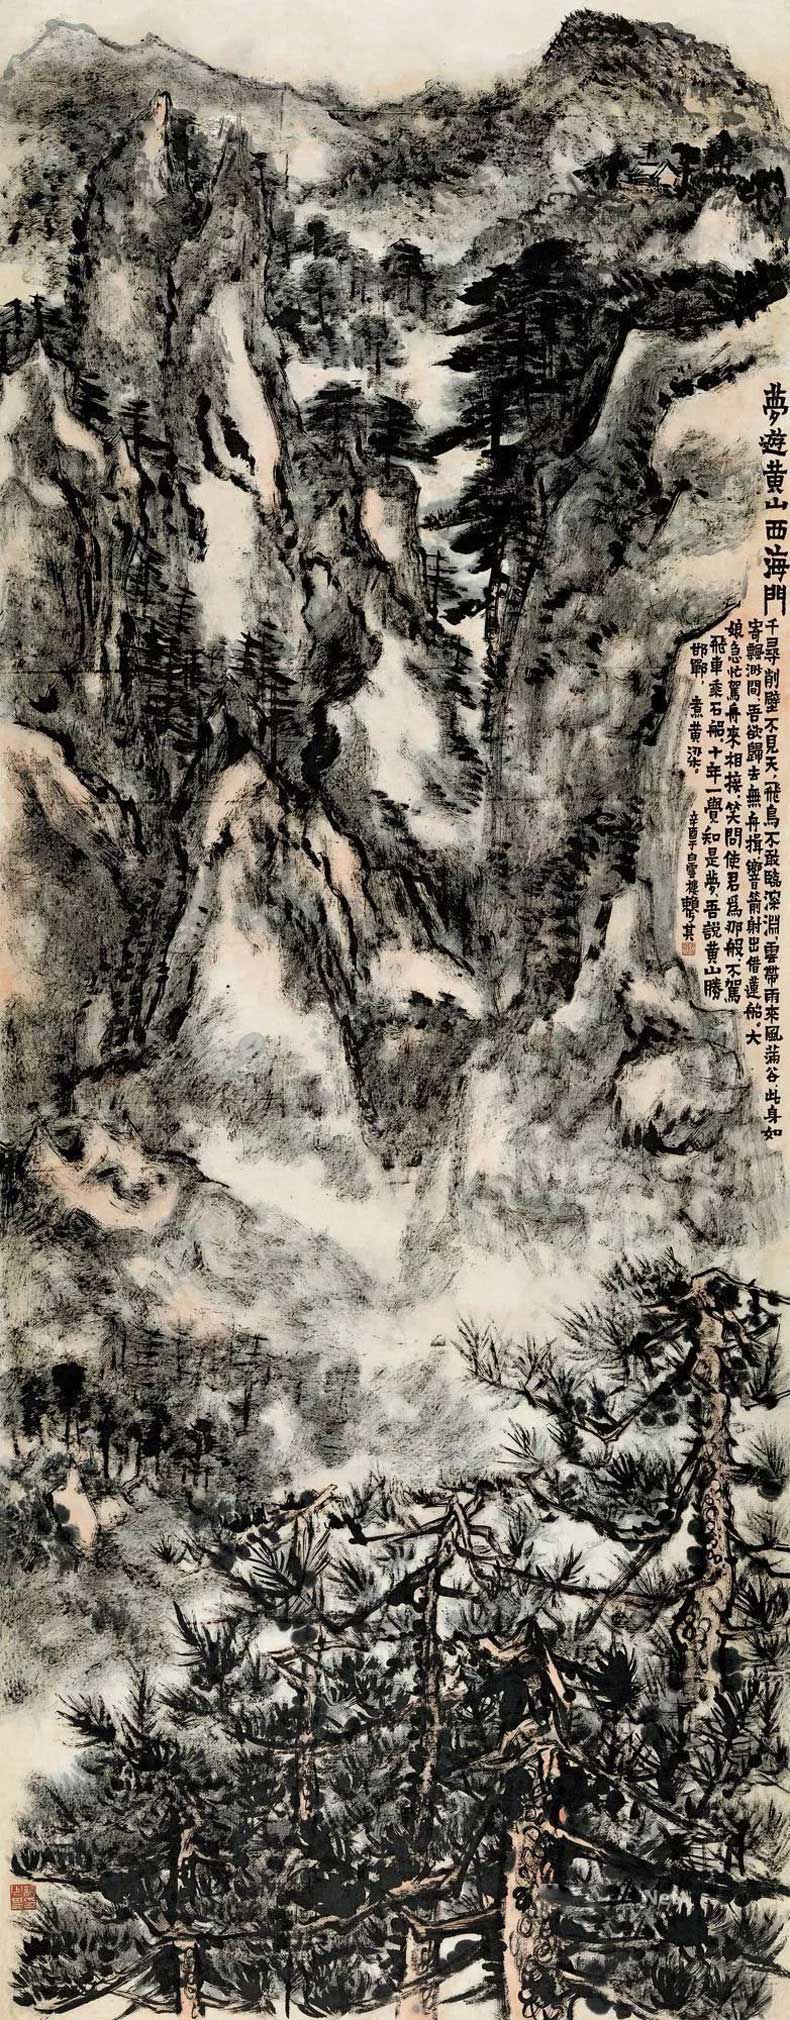 夢遊黄山西海門
千尋削壁不見天，飛鳥不敢臨深淵雲帶雨來風蒲谷此身如
寄飄渺間吾欲歸去無舟揖響箭射出借蓮船。大
娘急忙駕舟來相接，笑問使君爲那般，不駕
飛車乘石船，十年一覺知是夢，吾說黄山勝
邯鄲，煮黄粱。
辛酉于白雲樓賴少其